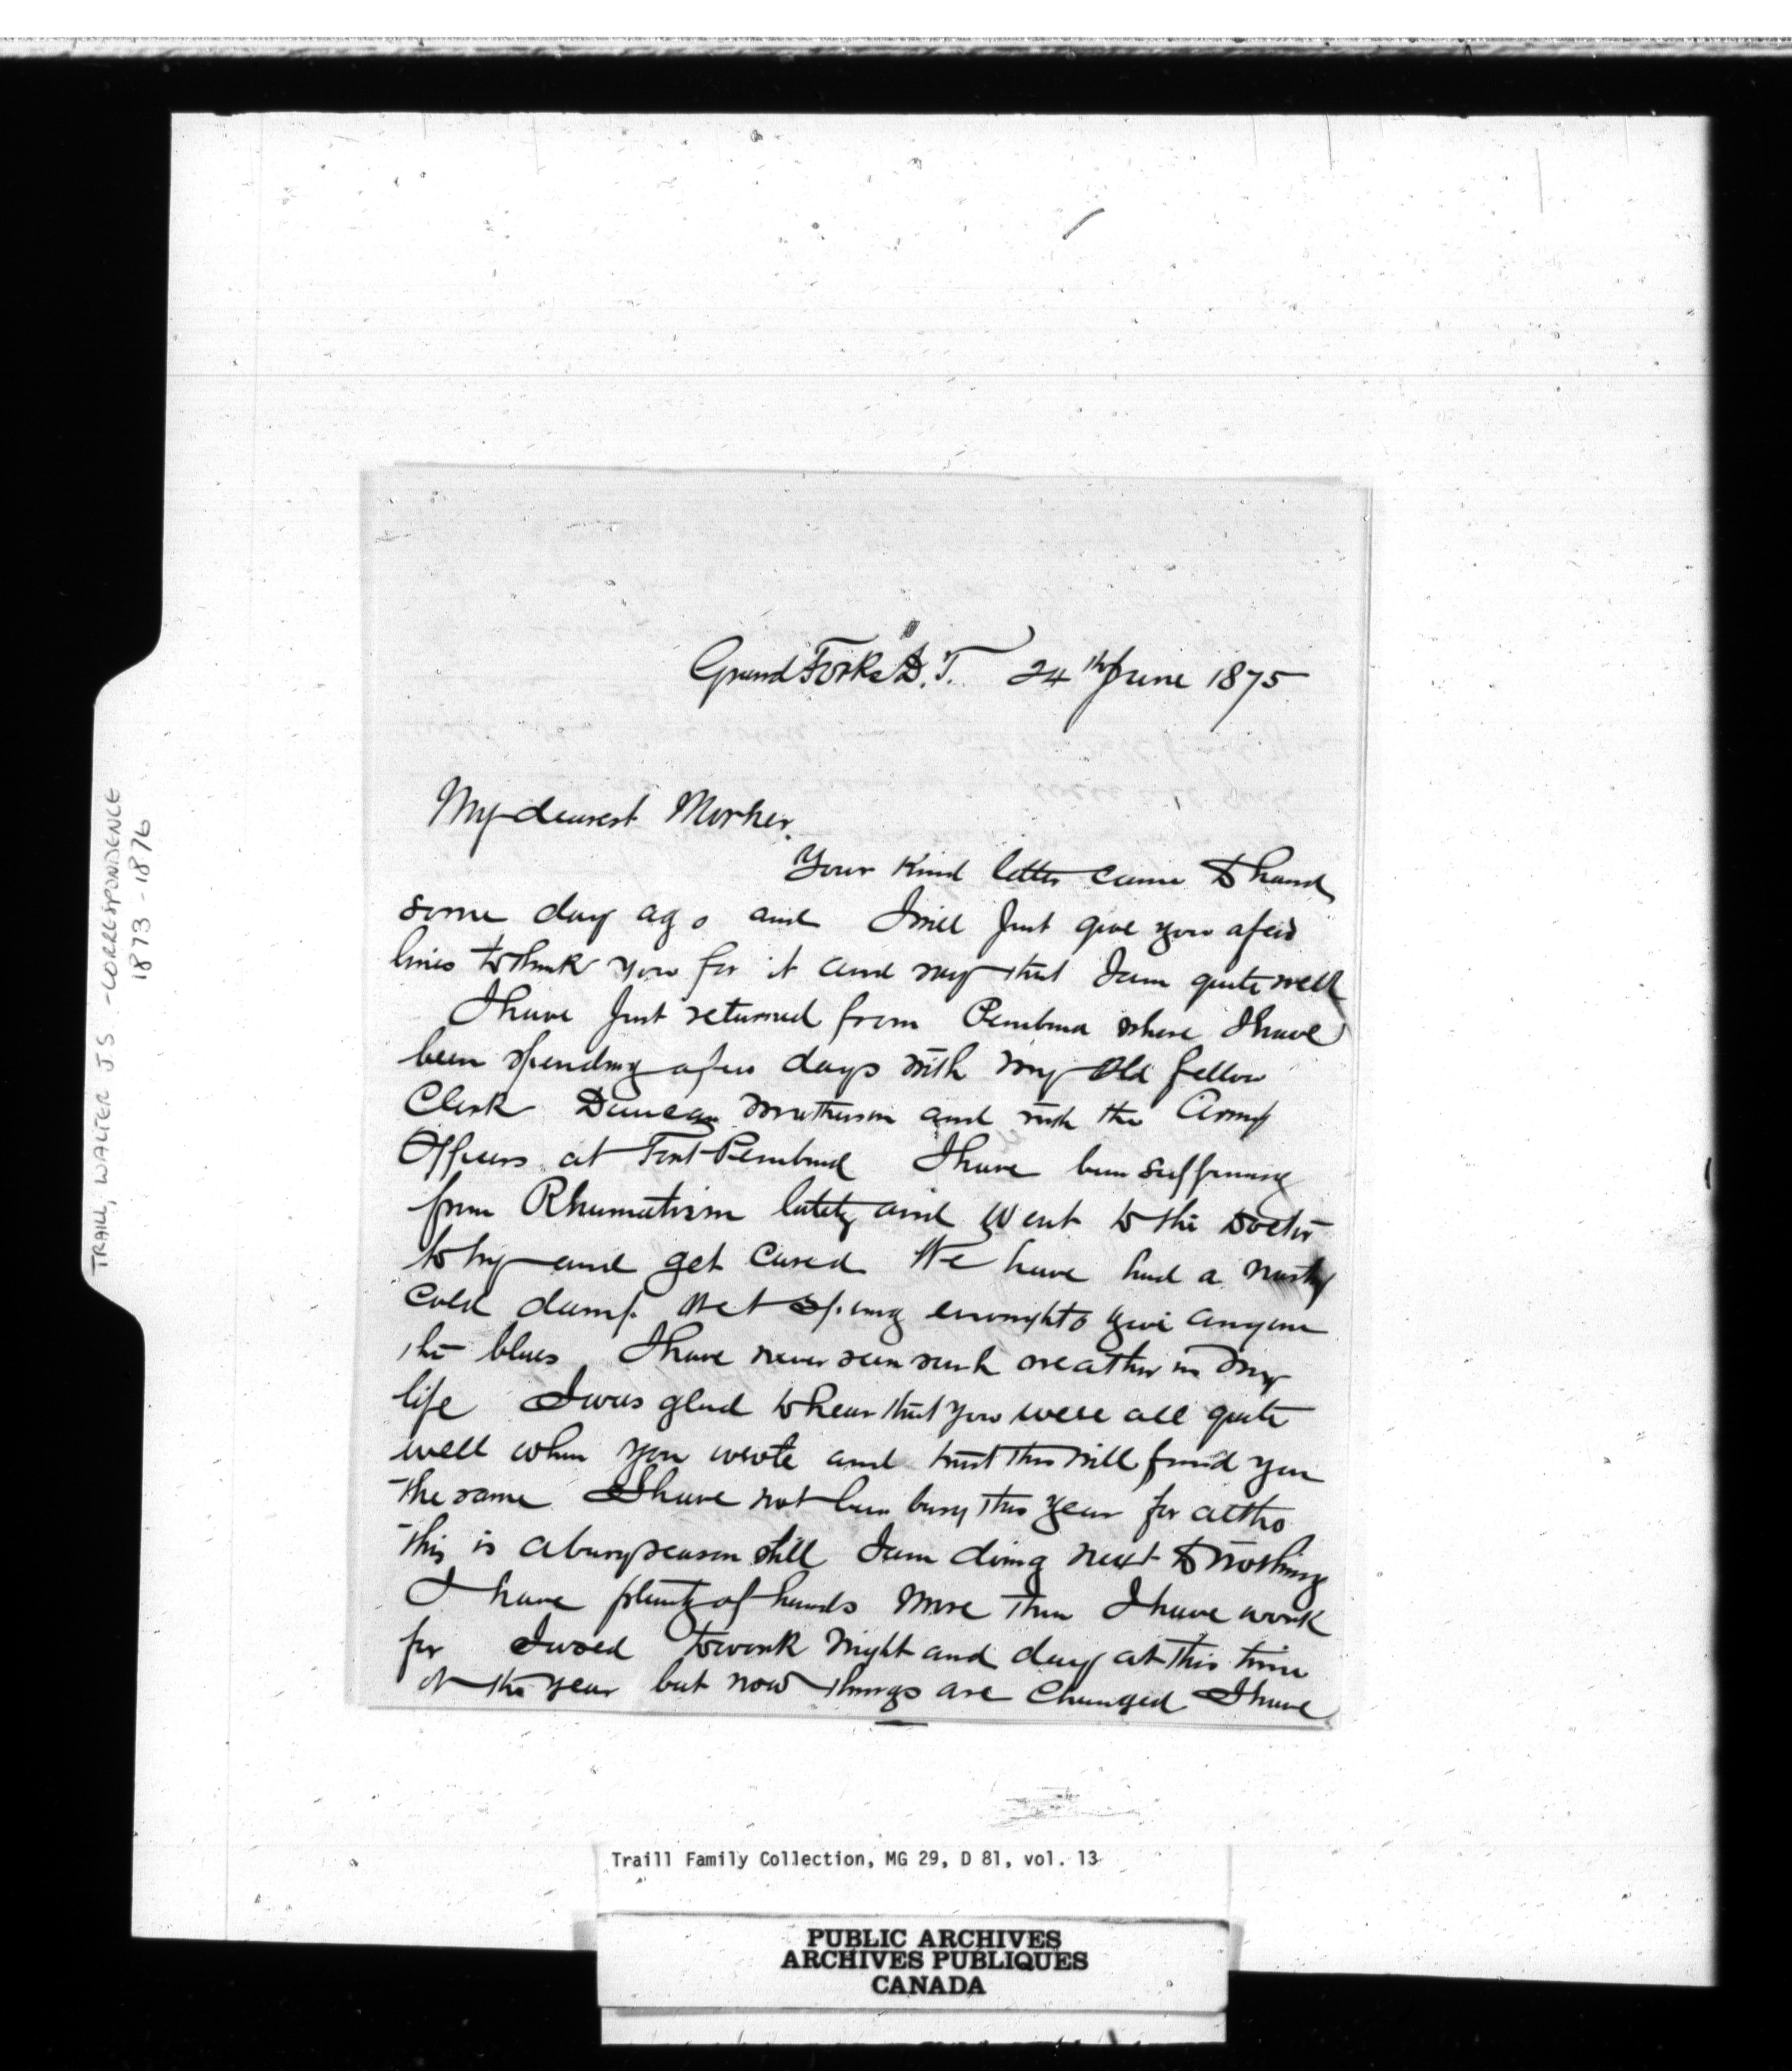 Grand Forks D.T. 24th June 1875
My dearest Mother.
Your Kind letter came to hand
some day ago and I will just give you a few
lines to thank you for it and say that I am quite well
I have just returned from Pembina where I have
been spending a few days with my old fellow
Clerk Duncan Matheson and with the Army
Officers at Fort Pembina I have been suffering
from Rhumatism lately and went to the Doctor
to try and get cured We have had a nasty
cold damp wet spring enough to give anyone
the blues I have never seen such weather in my
life I was glad to hear that you were all quite
well when you wrote and trust this will find you
the same I have not been busy this year for altho
this is a busy season still I am doing next to nothing
I have plenty of hands more than I have work
for I used to work night and day at this time
of the year but now things are changed I have
TRAILL, WALTER JS - CORRESPONDENCE
1873-1876
Traill Family Collection, MG 29, D 81, vol. 13
PUBLIC ARCHIVES
ARCHIVES PUBLIQUES
CANADA